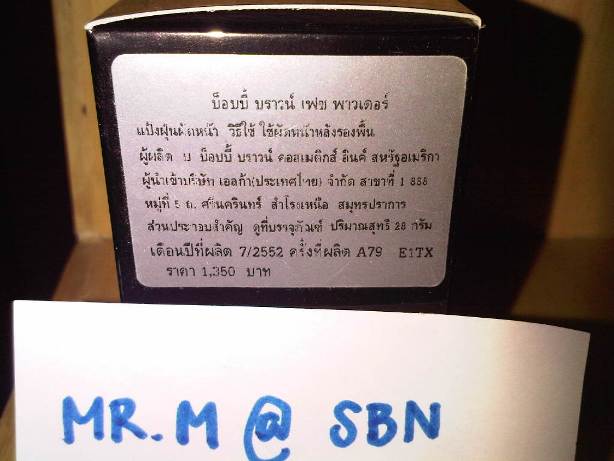 บ็อบบี้ บราวน์ เฟซ พาวเดอร์
แป้งฝุ่นผัดหน้า วิธีใช้ ใช้ผัดหน้าหลังรองพื้น
ผู้ผลิต บ. บ็อบบี้ บราวน์ คอสเมติกส์ อิงค์ สหรัฐอเมริกา
ผู้นำเข้าบริษัท เอลก้า(ประเทศไทย) จำกัด สาขาที่ 1 888
หมู่ที่ 5 ถ. ศรีนครินทร์ สำโรงเหนือ สมุทรปราการ
ส่วนประกอบสำคัญ ดูที่บรรจุภัณฑ์ ปริมาณสุทธิ 28 กรัม
เดือนปีที่ผลิต 7/2552 ครั้งที่ผลิต A79 E1TX
ราคา 1,350 บาท
MR.M @ SBN